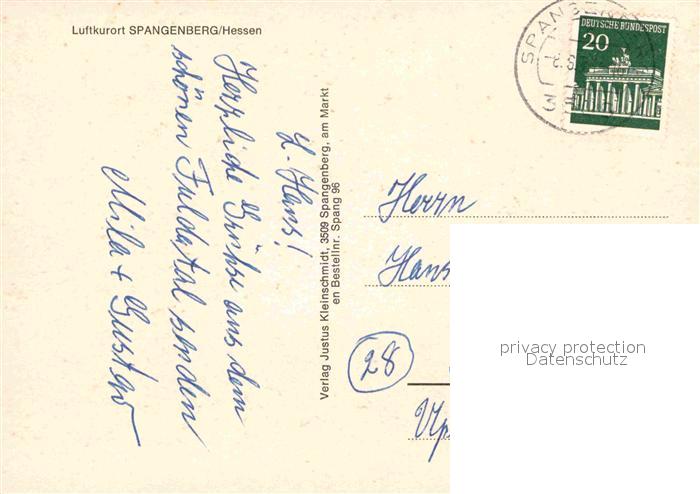 Luftkurort SPANGENBERG/Hessen
L. Hans!
Herzliche Grüße aus dem
schönen Fuldatal senden
Mila + Gustav
Verlag Justus Kleinschmidt, 3509 Spangenberg, am Markt
en Bestellnr. Spang 96
SPANGENB
DEUTSCHE BUNDESPOST
20
Herrn
Hans
28
privacy protection
Datenschutz